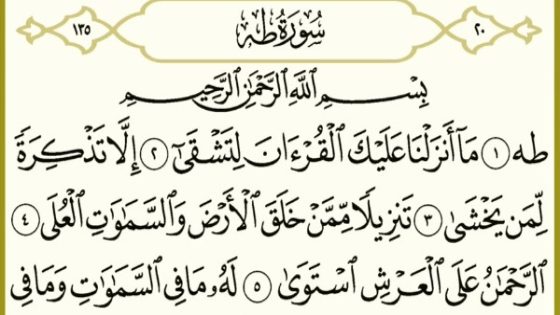 ٢٠ سُورَةُ طه ١٣٥
بِسْمِ اللَّهِ الرَّحْمَٰنِ الرَّحِيمِ
طه ١ مَآ أَنزَلْنَا عَلَيْكَ ٱلْقُرْءَانَ لِتَشْقَىٰٓ ٢ إِلَّا تَذْكِرَةً
لِّمَن يَخْشَىٰ ٣ تَنزِيلًا مِّمَّنْ خَلَقَ ٱلْأَرْضَ وَٱلسَّمَٰوَٰتِ ٱلْعُلَى ٤
ٱلرَّحْمَٰنُ عَلَى ٱلْعَرْشِ ٱسْتَوَىٰ ٥ لَهُۥ مَا فِى ٱلسَّمَٰوَٰتِ وَمَا فِى